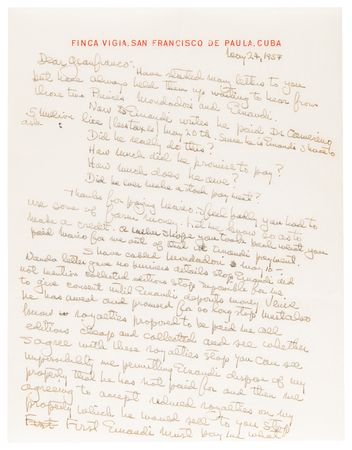 FINCA VIGIA, SAN FRANCISCO DE PAULA, CUBA
May 24, 1957
Dear Gianfranco:
Have started many letters to you
but have always held them up waiting to hear from
those two Mondadori and Einaudi.
Now Einaudi writes he paid De
5 million lire May 20th.
ask
Did he really do this?
How much did he promise to pay?
How much does he owe?
Did he ever make a stock payment?
Thanks for paying Mario. I feel badly you had to
use some of farm money. Let me know so as to
make a credit. I hope you took back what you
paid Mario for me out of that Einaudi payment.
I have cabled Mondadori May 10 -
letter gave no business details stop Einaudi did
not mention collected editions stop impossible for me
to give consent until Einaudi deposits money
he has owed and promised for so long stop must also
know royalties proposed to be paid me all
editions cheap and collected and see whether
I agree with these royalties stop you can see
impossibility me permitting Einaudi dispose of my
property that he has not paid for and then me
agreeing to accept reduced royalties on my
property which he would sell to you stop
First Einaudi must pay me what